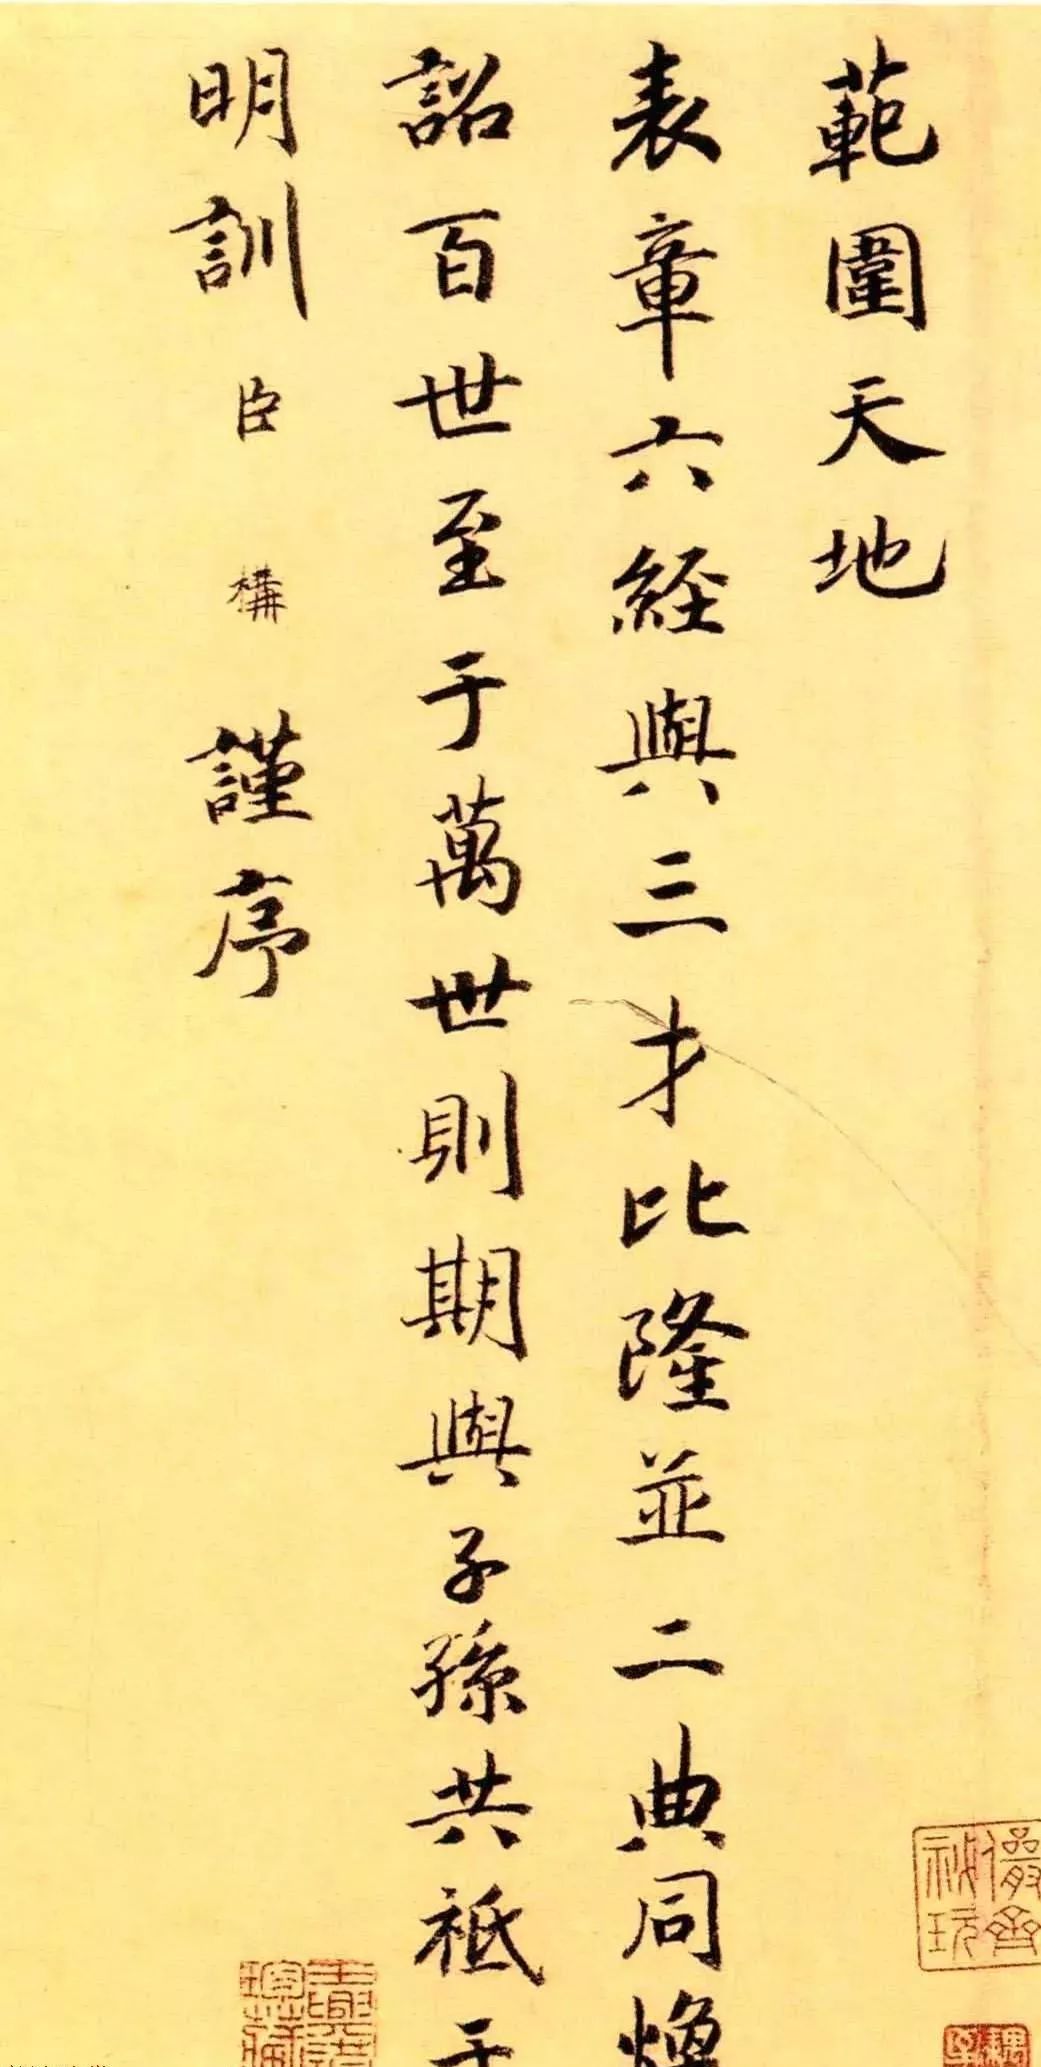 範圍天地
表章六經與三才比隆並二典同煥
詔百世至于萬世則期與子孫共祗于
明訓臣構謹序
儼齋秘玩